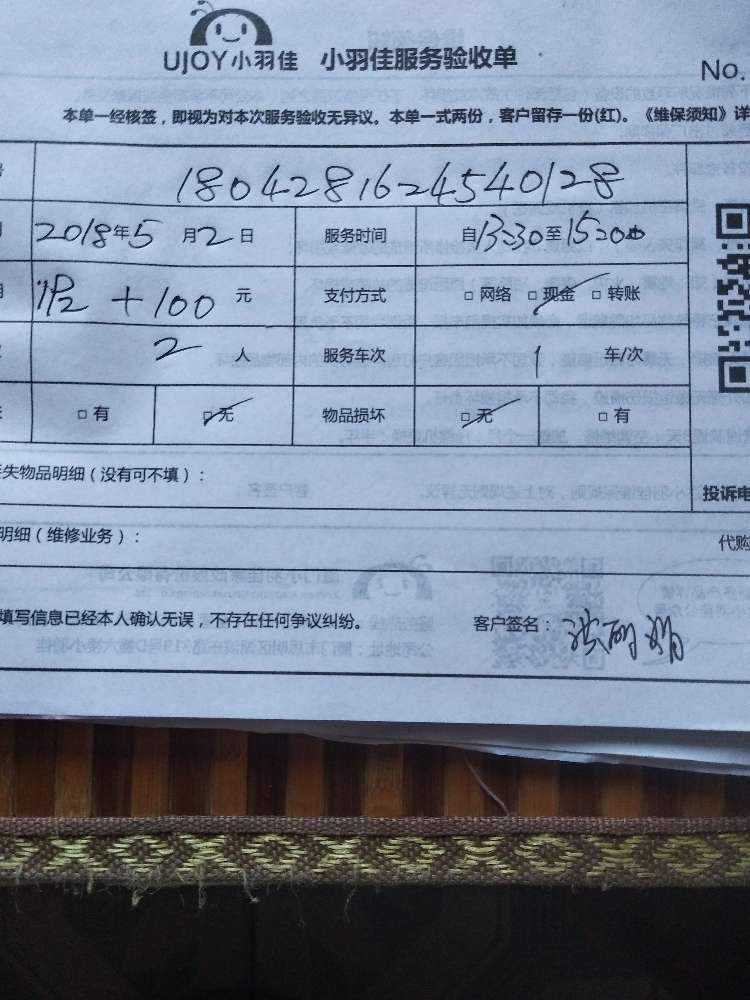 UJOY小羽佳 小羽佳服务验收单
No.
本单一经核签，即视为对本次服务验收无异议。本单一式两份，客户留存一份(红)。《维保须知》详
号 1804281624540128
2018年5月2日 服务时间 自13:30至15:00
+100 元 支付方式 □ 网络 □ 现金 □ 转账
2 人 服务车次 1 车/次
□ 有 □ 无 物品损坏 □ 无 □ 有
失物品明细（没有可不填）：
投诉电
明细（维修业务）：
代购
填写信息已经本人确认无误，不存在任何争议纠纷。 客户签名：